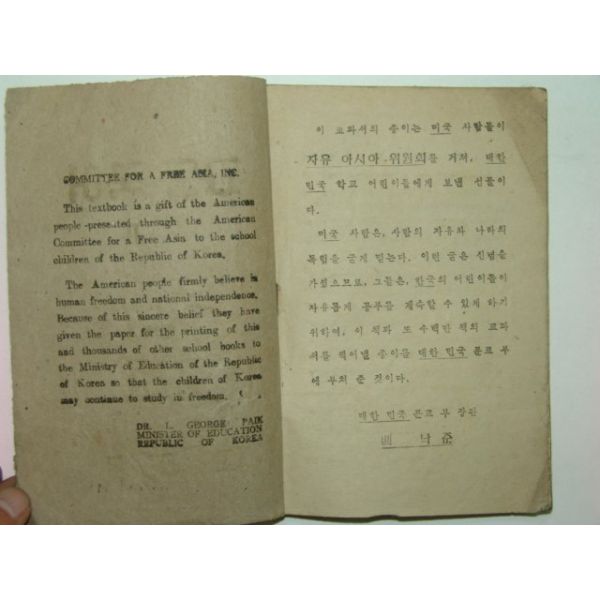 COMMITTEE FOR A FREE ASIA, INC.
This textbook is a gift of the American
people presented through the American
Committee for a Free Asia to the school
children of the Republic of Korea.
The American people firmly believe in
human freedom and national independence.
Because of this sincere belief they have
given the paper for the printing of this
and thousands of other school books to
the Ministry of Education of the Republic
of Korea so that the children of Korea
may continue to study in freedom.
DR. L. GEORGE PAIK
MINISTER OF EDUCATION
REPUBLIC OF KOREA
이 교과서의 종이는 미국 사람들이
자유 아시아 위원회를 거쳐, 대한
민국 학교 어린이들에게 보낸 선물이
다.
미국 사람은, 사람의 자유와 나라의
독립을 굳게 믿는다. 이런 굳은 신념을
가졌으므로, 그들은, 한국의 어린이들이
자유롭게 공부를 계속할 수 있게 하기
위하여, 이 책과 또 수백만 책의 교과
서를 찍어낼 종이를 대한 민국 문교 부
에 부쳐 준 것이다.
대한 민국 문교 부 장관
백 낙 준